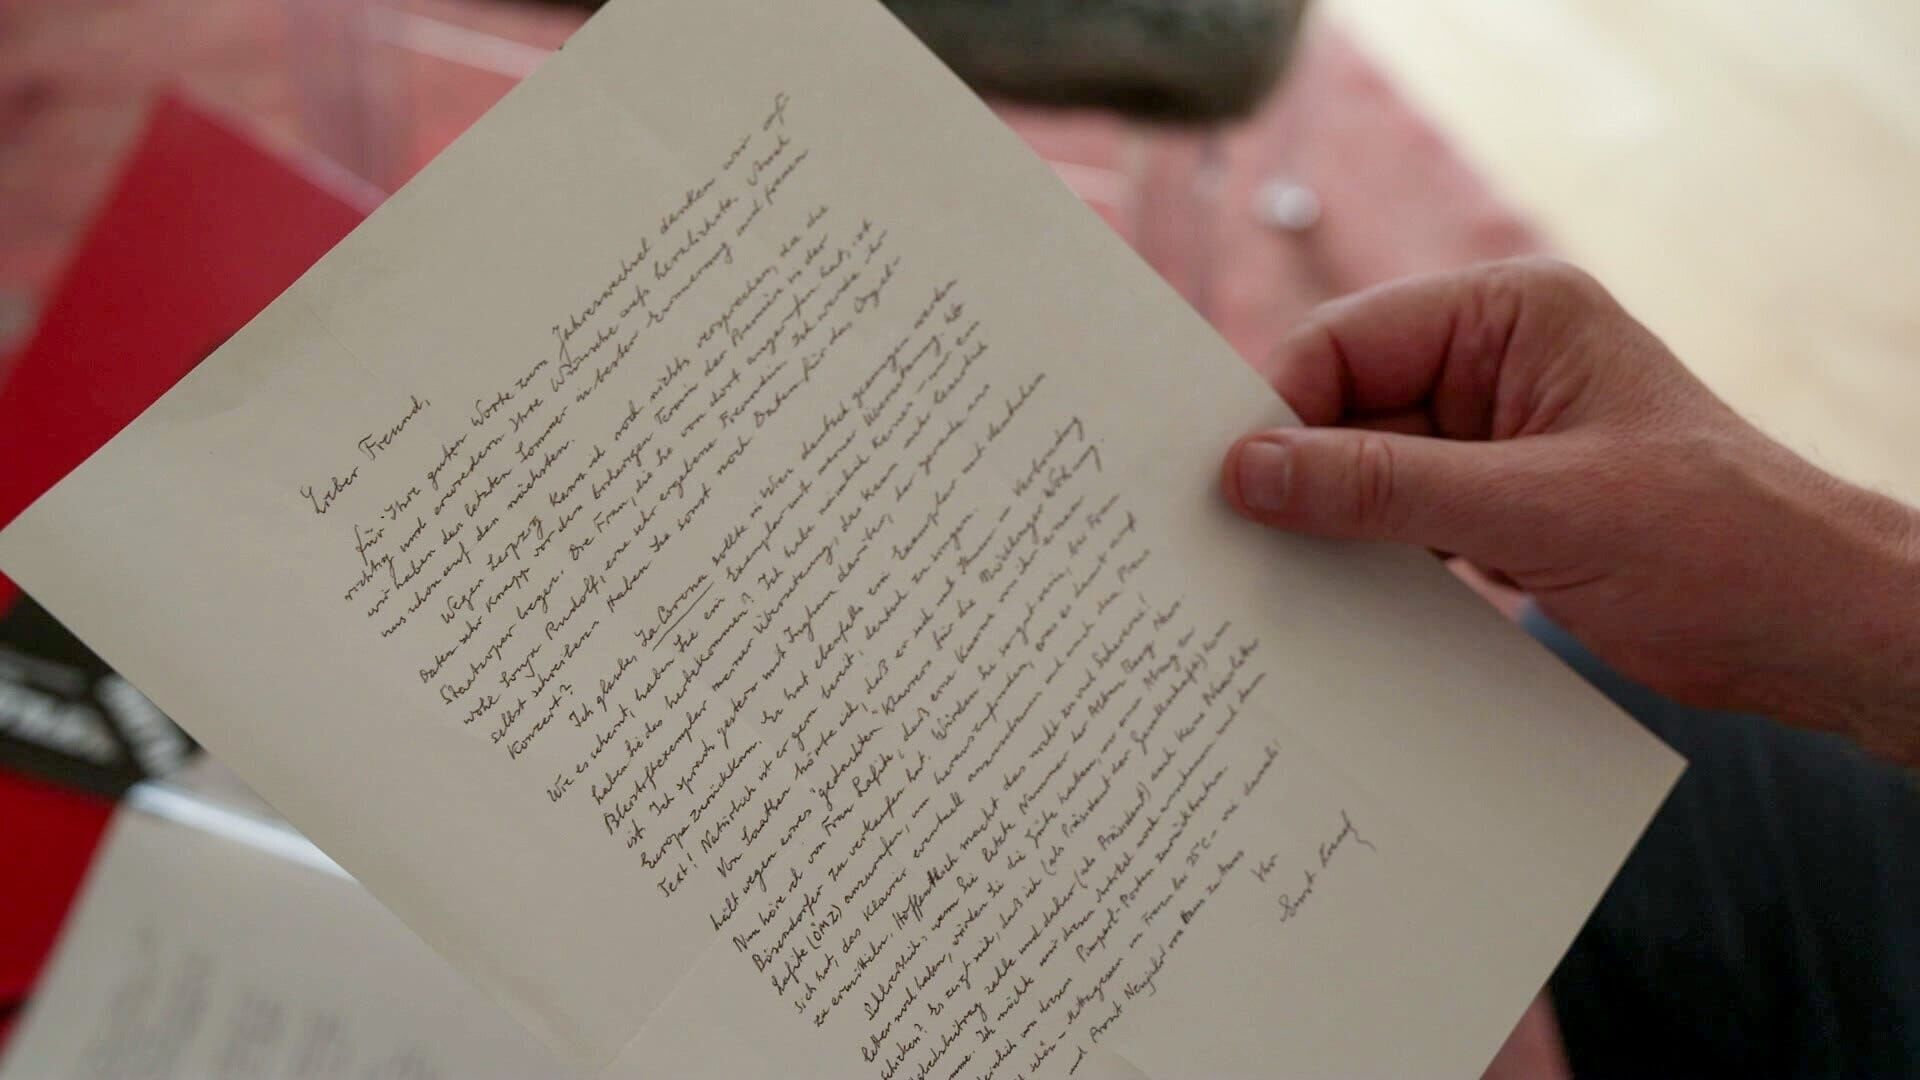 Lieber Freund,
für Ihre guten Worte zum Jahreswechsel danken wir auf-
richtig und erwiedern Ihre Wünsche aufs herzlichste. Auch
wir haben den letzten Sommer in bester Erinnerung und freuen
uns schon auf den nächsten.
Wegen Leipzig kann ich noch nichts versprechen, da die
Daten sehr knapp vor den bisherigen Termin der Premiere in der
Staatsoper liegen. Die Frau, die Sie von dort angerufen hat, ist
wohl Sonja Rudolfi, eine sehr ergebene Freundin. Ich werde ihr
selbst schreiben. Haben Sie sonst noch Daten für das Orgel-
Konzert?
Ich glaube, La Corona sollte in Wien deutsch gesungen werden.
Wie es scheint, haben Sie ein Exemplar mit meiner Übersetzung. Wo
haben Sie das herbekommen? Ich habe nämlich keines – nur ein
Bleistiftexemplar meiner Übersetzung, das kaum mehr leserlich
ist. Ich sprach gestern mit Ingham darüber, der gerade aus
Europa zurückkam. Er hat ebenfalls ein Exemplar mit deutschem
Text! Natürlich ist er gern bereit, deutsch zu singen.
Von Saathen hörte ich, daß er sich mit Ihnen in Verbindung
hält wegen eines "gedachten" Klaviers für die Mödlinger Wohnung.
Nun höre ich von Frau Lafite, daß eine Kusine von ihr einen
Bösendorfer zu verkaufen hat. Würden Sie so gut sein, bei Frau
Lafite (ÖMZ) anzurufen, um herauszufinden, was es damit auf
sich hat, das Klavier eventuell anzusehen und auch den Preis
zu ermitteln. Hoffentlich macht das nicht zu viel Scherereien!
Schliesslich: wenn Sie die letzte Nummer der Alban Berg Nos.
letter noch haben, würden Sie die Güte haben, mir einen Abzug zu
schicken? Es zeigt sich, daß ich (als Präsident der Gesellschaft) kein
zahle und daher (als Präsident) auch keine Newsletter
Ich möchte mir diesen Artikel noch ansehen und dann
von diesem Posten zurücktreten.
schön – Mittagessen im Freien bei 25°C – wie damals!
und Prosit Neujahr von Haus zu Haus
Ihr
Ernst Krenek